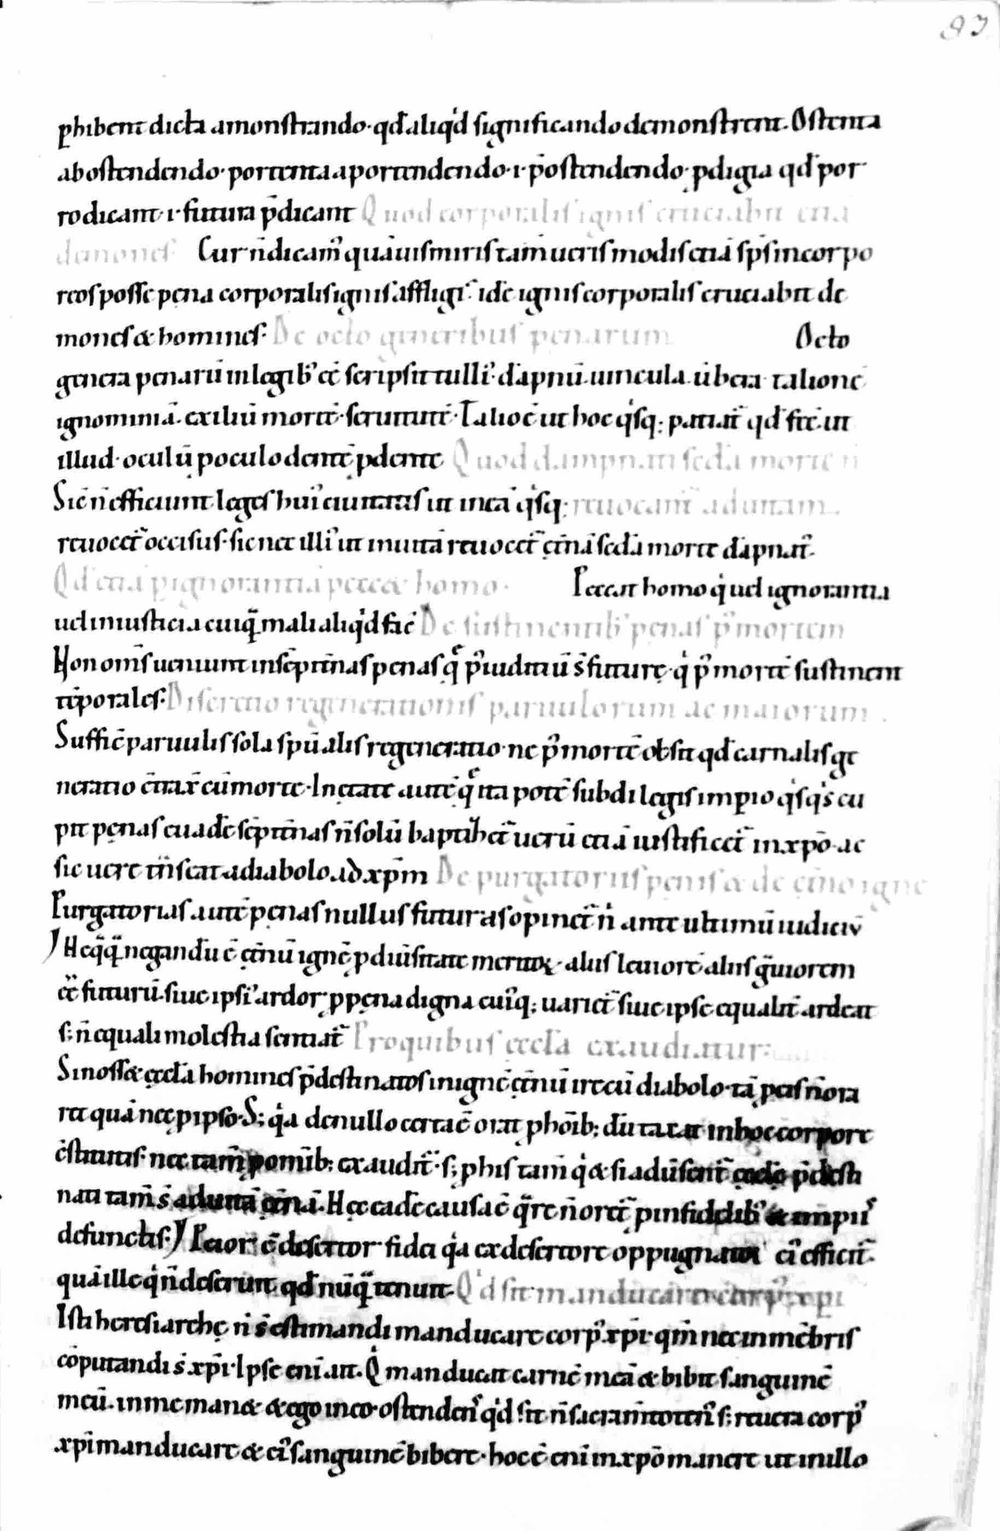 83
phibent dicta a monstrando· qd̄ aliqͥd significando demonstrent. Ostenta
ab ostendendo· portenta a portendendo· ı· p̄ostendendo· ꝓdigia qd̄ por
ro dicant· ı· futura p̄dicant Quod corporalis ignis cruciabit etiā
demones Cur n̄ dicamꝰ quāuis miris tam̄ ueris modis etiā sp̄s incorpo
reos posse pena corporalis ignis affligi· id ē ignis corporalis cruciabit de
mones & homines· De octo generibus penarum Octo
genera penarū in legibꝰ ēē scripsit tulliꝰ· dāpnū. uincula. ūbera talionē
ignominiā. exiliū mortē· seruitutē· Talio ē ut hoc qͥsq; patiat̄ qd̄ fēc̄. ut
illud· oculū ꝓ oculo dentē ꝓ dente Quod dampnati secdā morte n̄
Sic n̄ efficiunt leges huiꝰ ciuitatis ut in eā qͥsq; reuocant̄ ad uitam.
reuocet̄ occisus· sic nec illiꝰ ut in uitā reuocet̄ et̄nā secdā morte dāpnat̄.
Qd̄ etiā p ignorantiā peccet homo· Peccat homo qͥ uel ignorantia
uel iniusticia cuiq̄ mali aliqͥd facͭ De sustinentibꝰ penas pꝰ mortem
Non om̄s ueniunt in sēpit̄nas penas q̄ pꝰ iudiciū s̄ future· qͥ pꝰ mortē sustinent
tēporales· Discretio regenerationis paruulorum ac maiorum.
Sufficͭ paruulis sola sp̄ualis regeneratio· ne pꝰ mortē obsit qd̄ carnalis ge
neratio ct̄rax̄ cū morte· In etate autē q̄ ita potē subdi legis imꝑio qͥsqͥs cu
pit penas euadē sēpit̄nas n̄ solū baptizet̄ uerū etiā iustificet̄ in xp̄o· ac
sic uere t̄nseat a diabolo ad xp̄m De purgatoriis penis & de et̄no igne
Purgatorias autē penas nullus futuras opinet̄ nͥ ante ultimū iudiciū
Neq̄q̄ negandū ē et̄nū ignē ꝓ diuͥsitate meritoꝝ· aliis leuiorē aliis gͣuiorem
ēē futurū. siue ipsiꝰ ardor ꝓ pena digna cuiꝰq; uariet̄ siue ipse equalit̄ ardeat
s; n̄ equali molestia sentiat̄ Pro quibus ecclā exaudiatur.
Si nosset ecclā homines p̄destinatos in ignē et̄nū ire cū diabolo· tā ꝓ eis n̄ ora
ret quā nec ꝓ ipso· S; qͥa de nullo certa ē orat ꝓ hoīb; dū taxat in hoc corpore
c̄stitutis· nec tam̄ ꝓ omīb; exaudit̄· s; ꝓ his tam̄ qͥ & si adūsent̄ ecclē p̄desti
nati tam̄ s̄ ad uitā et̄nā. Hec eadē causa ē q̄re n̄ oret̄ ꝓ infidelibꝰ & impiis
defunctis· Peior ē desertor fidei qͥa ex desertore oppugnator eiꝰ efficit̄
quā ille qͥ n̄ deseruit qd̄ nūq̄ tenuit· Qͥd sit manducare corpꝰ xp̄i
Isti heresiarche n̄ s̄ estimandi manducare corpꝰ xp̄i· qm̄ nec in mēbris
cōputandi s̄ xp̄i· Ipse eni ait. Qͥ manducat carnē meā & bibit sanguinē
meū. in me manet & ego in eo· ostendens qͥd sit n̄ sacram̄totenꝰ s; reuera corpꝰ
xp̄i manducare & eiꝰ sanguinē bibere· hoc ē eni in xp̄o manere ut in illo